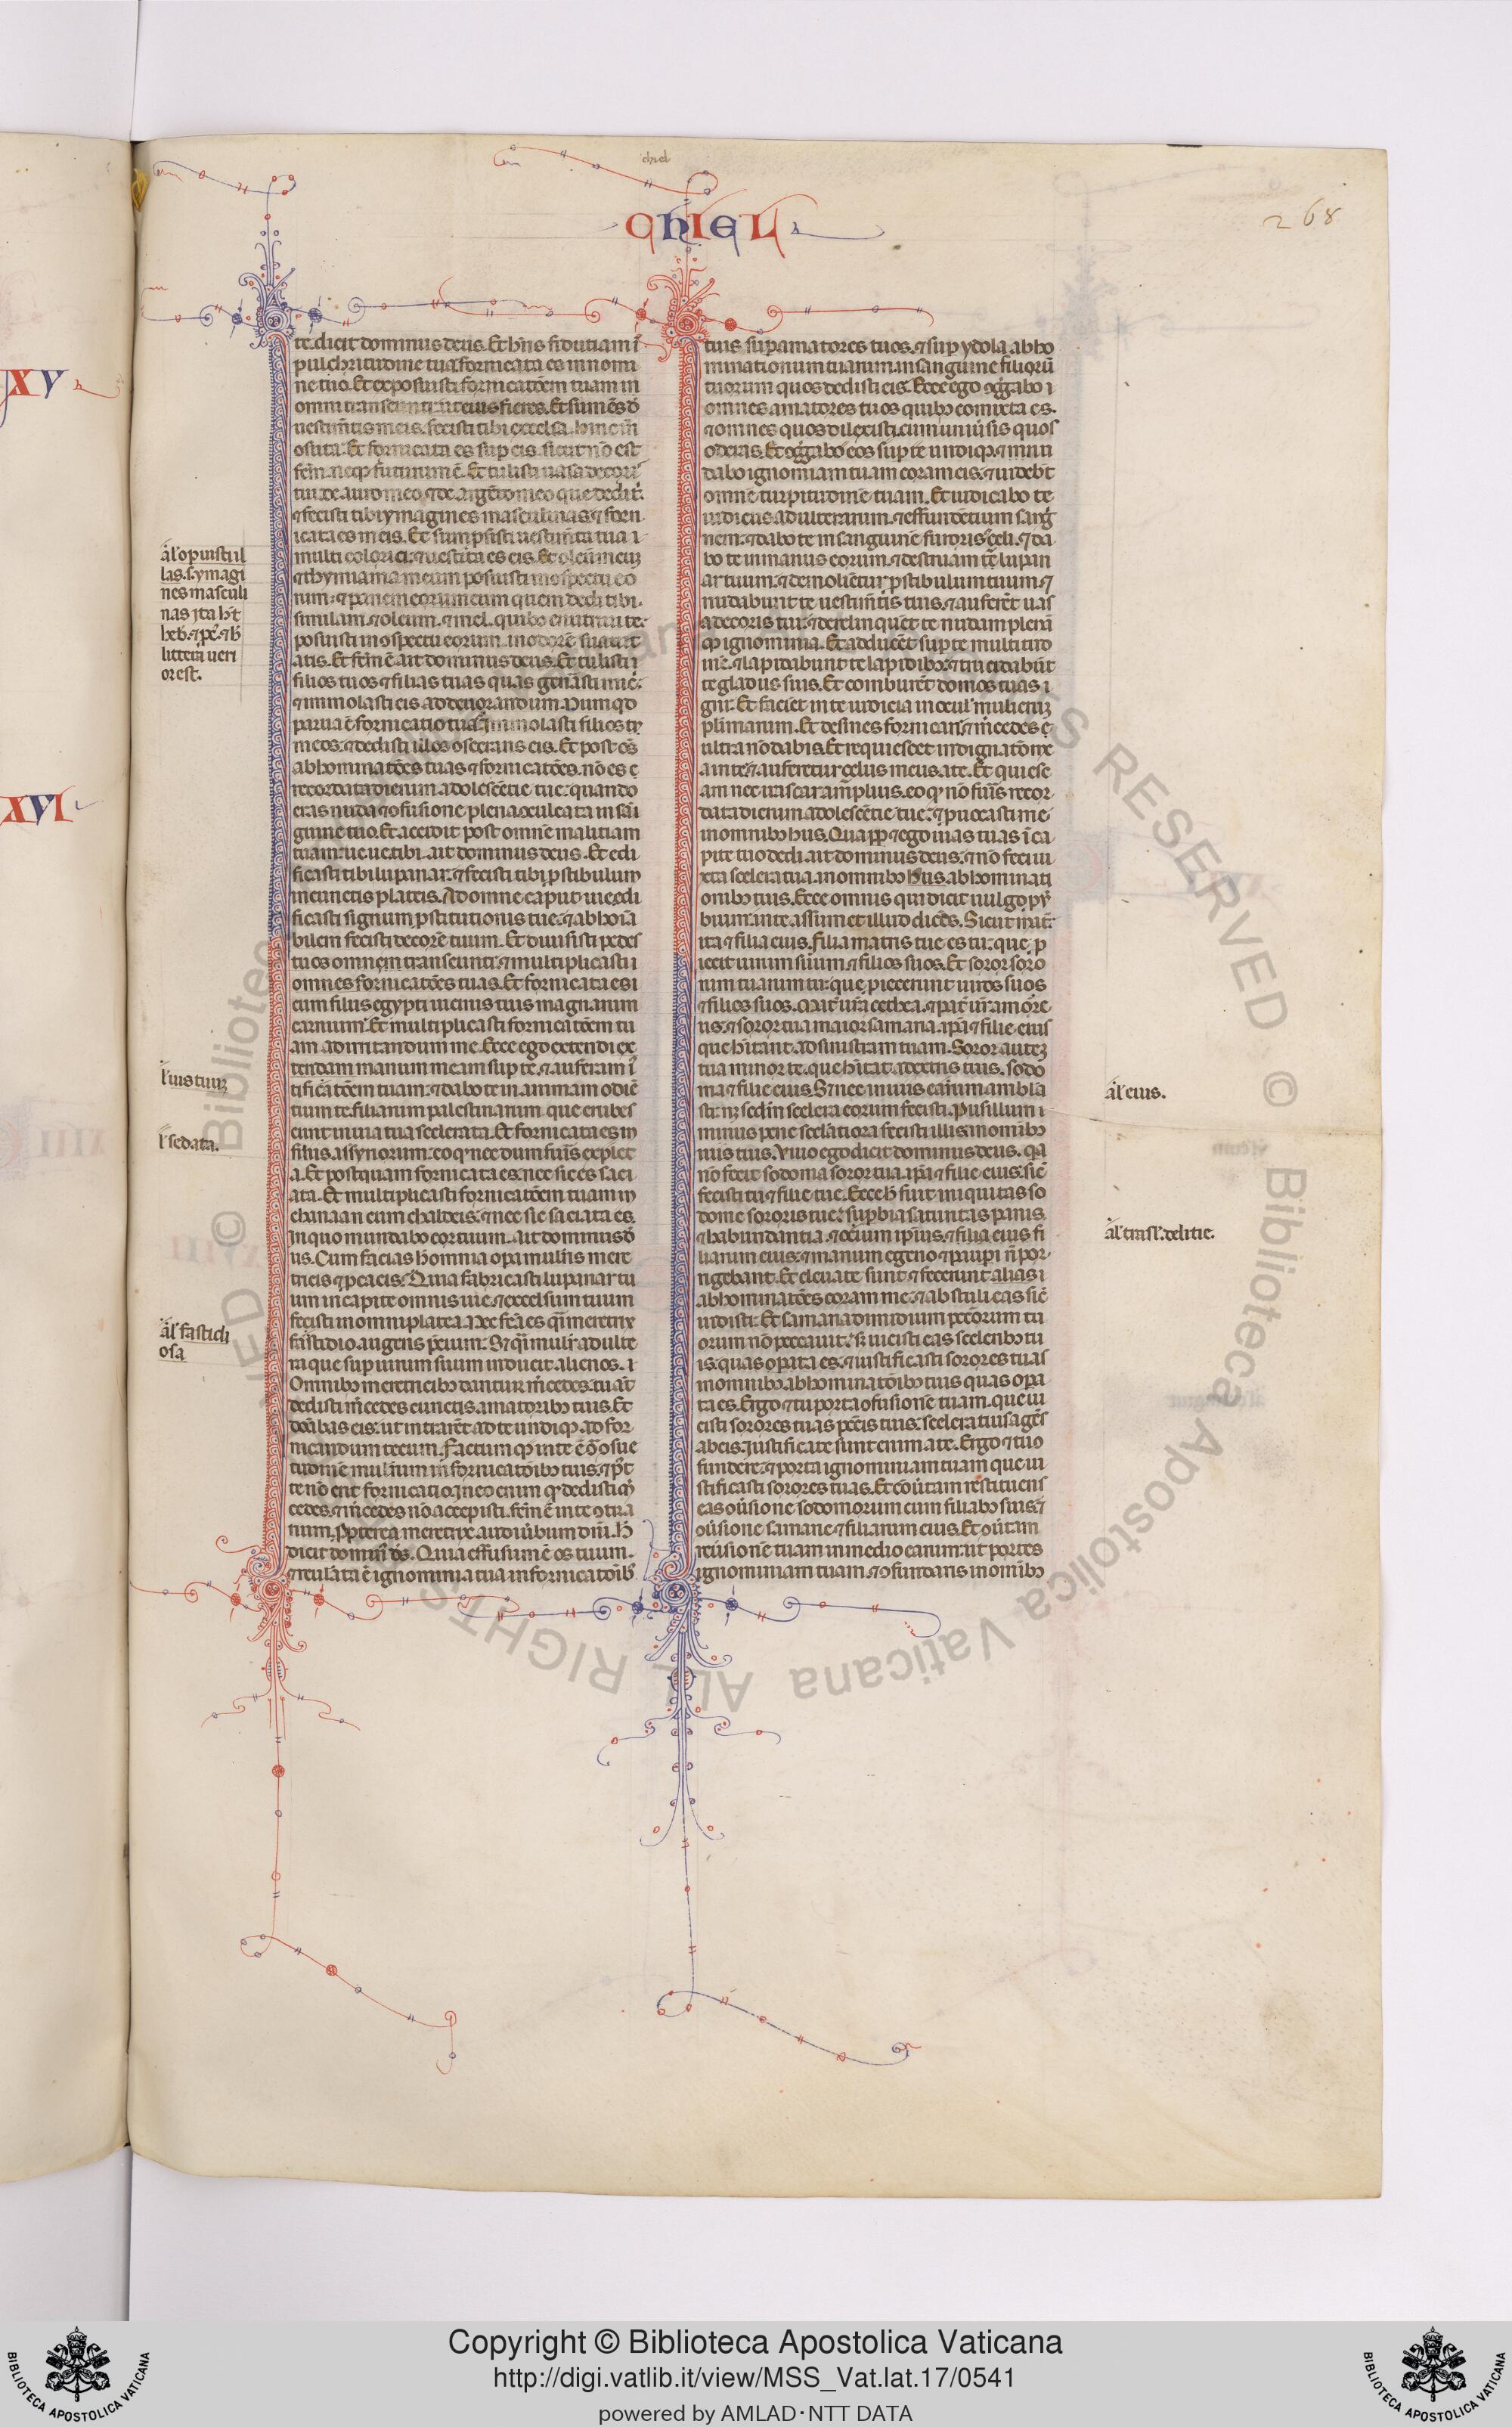 chiel
CHIEL
268
XV
XVI
te. dicit dominus deus. Et hn̄s fidutiam ī
pulchritudine tua. fornicata es in nomi
ne tuo. Et exposuisti fornicatōem tuam in
omni transeunti: ut eius fieres. Et sumēs d̄
uestim̄tis meis. fecisti tibi excelsa. hinc in̄
osuta. Et fornicata es sup eis. sicut nō est
fc̄m. neq̨ futurum ē. Et tulisti uasa decoris
tui. de auro meo. ⁊ de argēto meo que dedi t:
⁊ fecisti tibi ymagines masculinas. ⁊ forn
icata es in eis. Et sumpsisti uestim̄ta tua ı
multi coloria: ⁊ uestita es eis. Et oleū meuȝ
⁊ thymiama meum posuisti inɔspectu eo
rum. ⁊ panem eorum eum quem dedi tibi.
similam. ⁊ oleum. ⁊ mel. quibȝ enutriui te.
posuisti in ɔspectu eorum. in odorē suauit
atis. Et fc̄m ē ait dominus deus. Et tulisti ı
filios tuos ⁊ filias tuas quas gen̄asti mic̄.
⁊ immolasti eis ad deuorandum. Num qd
parua ē fornicatio tua. Immolasti filios tꝰ
meos. ⁊ dedisti illos ɔsecrans eis. Et post oēs
abhominatōes tuas ⁊ fornicatōes. nō es e
recordata dierum adolescētie tue: quando
eras nuda ⁊ ɔfusione plena. ɔculcata in sāı
guine tuo. Et accidit post omnē malitiam
tuam: ue ue tibi. ait dominus deus. Et edi
ficasti tibi lupanar. ⁊ fecisti tibi pstibulum
in cunctis plateis. Ad omne caput uie edi
ficasti signum pstitutionis tue: ⁊ abhoīa
bilem fecisti decorē tuum. Et diuisisti pedes
tuos omnem transeunti: ⁊ multiplicasti ı
omnes fornicatōes tuas. Et fornicata es ı
cum filiis egypti uicinis tuis magnarum
carnium. Et multiplicasti fornicatōem tu
am ad irritandum me. Ecce ego extendi ex
tendam manum meam sup te. ⁊ auferam ī
tificātōem tuam: ⁊ dabo te in animam odiē
tium te. filiarum palestinarum que erubes
cunt in uia tua scelerata. Et fornicata es in
filiis assyriorum. eo qꝰ nec dum fuis̄ explet
a. Et postquam fornicata es. nec sic es saci
ata. Et multiplicasti fornicatōem tuam in
chanaan cum chaldeis. ⁊ nec sic saciata es.
In quo mundabo cor tuum. ait dominus d̄
us. Cum facias h̄ omnia opa mulīris mere
tricis ⁊ pcacis. Quia fabricasti lupanar tu
um in capite omnis uie. ⁊ excelsum tuum
fecisti in omni platea. Nec fc̄a es q̄ si meretrix
fastidio augens p̄cium. S; q̄ si mulīr adulte
ra que sup uirum suum inducit alienos. ı
Omnibȝ meretricibȝ dantur m̄cedes. tu aut̄
dedisti m̄cedes cunctis amatoribȝ tuis. Et
dōa dabas eis. ut intrarēt ad te undiqȝ ad for
nicandum tecum. Factum qȝ in te ē ɔ̄ ɔsue
tudinē mulierum in fornicatōibȝ tuis. ⁊ p̄t
te nō erit fornicatio. In eo enim qꝰ dedisti m̄
cedes. ⁊ m̄cedes nō accepisti. fc̄m ē in te ɔtra
rium. Ppterea meretrix audi uibum dn̄i. H̄
dicit dominꝰ ds. Quia effusum ē es tuum.
⁊ reulata ē ignominia tua in fornicatōibȝ
tuis sup amatores tuos. ⁊ sup ydola abho
minationum tuarum. in sanguine filiorū
tuorum quos dedisti eis. Ecce ego ɔggabo ı
omnes amatores tuos quibȝ comixta es.
⁊ omnes quos dilexisti. cum uniu͛sis quos
oderas. Et ɔggabo eos sup te undiqȝ. ⁊ nuu
dabo ignomiam tuam coram eis. ⁊ uidebt̄
omnē turpitudinē tuam. Et iudicabo te
iudiciis adulterarum. ⁊ effundētium sang
nem. ⁊ dabo te in sanguinē furoris ⁊ çeli. ⁊ da
bo te in manus eorum. ⁊ destruam te lupan
ar tuum. ⁊ demoliētur pstibulum tuum ⁊
nudabunt te uestim̄tis tuis. ⁊ auferēt uas
a decoris tui. ⁊ derelinquēt te nudam plenā
qȝ ignominia. Et adducēt sup te multitud
inē. ⁊ lapidabunt te lapidibȝ. ⁊ trucidabūt
te gladiis suis. Et comburēt domos tuas ı
gni. Et faciēt in te iudicia in ocul' mulieruȝ
plīmarum. Et desines fornicari. ⁊ m̄cedes ę
ultra nō dabis. Et requiescet indignatō me
a in te. ⁊ auferetur çelus meus a te. Et quiesc
am nec irascar amplius. eo qꝰ nō fuis̄ recor
data dierum adolescētie tue. ⁊ puocasti me
in omnibȝ hiis. Qua pp ⁊ ego uias tuas ī ca
pite tuo dedi. ait dominus deus. ⁊ nō feci iu
xta scelera tua. in omnibȝ hiis abhominati
onibȝ tuis. Ecce omnis qui dicit uulgo pꝰ
bium. in te assumet illud dicēs. Sicut mat̄
ita ⁊ filia eius. Filia matris tue es tu: que p
iecit uirum suum ⁊ filios suos. Et soror soro
rum tuarum tu: que piecerunt uiros suos
⁊ filios suos. Mat̄ ur̄a cethea. ⁊ pat̄ ur̄ amorre
us. ⁊ soror tua maior samaria. ipā ⁊ filie eius
que hītant ad sinistram tuam. Soror auteȝ
tua minor te. que hītat a dextris tuis. sodo
ma ⁊ filie eius. S; nec in uiis earum ambla
sti. nȝ sc̄dm scelera eorum fecisti. Pusillum ı
minus pene scelatiora fecisti illis in omnibȝ
uiis tuis. Viuo ego dicit dominus deus. qa
nō fecit sodoma soror tua. ipā ⁊ filie eius. sic̄
fecisti tu ⁊ filie tue. Ecce h̄ fuit iniquitas so
dome sororis tue. supbia saturitas panis.
⁊ habundantia. ⁊ ocium ipius. ⁊ filia eius fi
liarum eius. ⁊ manum egeno ⁊ paupi n̄ por
rigebant. Et eleuate sunt ⁊ fecerunt alias ı
abhominatōes coram me. ⁊ abstuli eas sic̄
uidisti. Et samaria dimidium peccōrum tu
orum nō peccauit. s; uicisti eas sceleribȝ tu
is. quas opata es. ⁊ iustificasti sorores tuas
in omnibȝ abhominatōibȝ tuis quas opa
ta es. Ergo ⁊ tu porta ɔfusionē tuam. que ui
cisti sorores tuas pccīs tuis. sceleratius agēs
ab eis. Iustificate sunt enim a te. Ergo ⁊ tu ɔ
fundere. ⁊ porta ignominiam tuam que iu
stificasti sorores tuas. Et cōu͛tam restituens
eas ɔu͛sione sodomorum cum filiabȝ suis. ⁊
ɔu͛sione samarie ⁊ filiarum eius. Et ɔu͛tam
reu͛sionē tuam in medio earum. ut portes
ignominiam tuam. ⁊ ɔfundaris in omnibȝ
al' opuistul
las. s. ymagi
nes masculi
nas ita h̄t
heb'. ⁊ pc̄. ⁊ h̄
littera ueri
or est.
l' ius tuuȝ
l' sedata.
al' fastidi
osa
al' eius.
al' trasl'. delitie.
© Biblioteca Apostolica Vaticana ALL RIGHTS RESERVED © Biblioteca Apostolica Vaticana ALL RIGHTS RESERVED
Copyright © Biblioteca Apostolica Vaticana
http://digi.vatlib.it/view/MSS_Vat.lat.17/0541
powered by AMLAD·NTT DATA
BIBLIOTECA APOSTOLICA VATICANA
BIBLIOTECA APOSTOLICA VATICANA